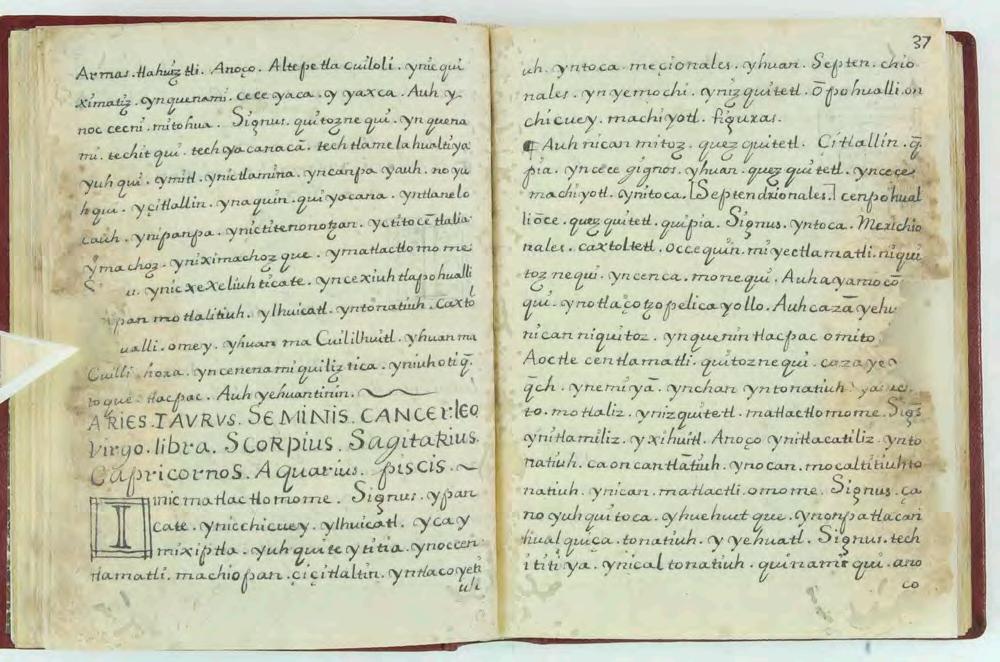 Armas. tlahuiz tli. Anoço. Altepetla cuiloli. ynic qui
ximatiz. yn quenami. ce ce yaca. y yaxca. Auh y-
noc cecni. mitohua. Signus. quitozne qui. yn quena
mi. techit qui. tech yacanacā. tech tlame la hualti ya
yuh qui. ymitl. ynic tlamina. yn canpa yauh. no yu
h qui. y çitlallin. yn aquin. qui yacana. yntlanelo
cauh. yn ipanpa. ynic titenonotzan. yc titocē tlalia
ymachoz. yn iximachoz que. ymatlactlomome
S u. ynic xexeliuh ticate. yn cexiuh tlapohualli
ypan motlalitiuh. ylhuicatl. yn tonatiuh. caxto
ualli. omey. yhuan ma Cuililhuitl. yhuan ma
Cuilli hora. yn cenenamiquiliz tica. yniuh oti q̄
to que tlacpac. Auh yehuantinin.
ARIES. TAVRVS. SEMINIS. CANCer. leo
Virgo. libra. SCORPius. Sagitarius.
Capricornos. Aquarius. piscis.
Inic matlactlomome. Signus. ypan
cate. ynic chicuey. ylhuicatl. yca y
mixiptla. yuh quite ytitia. ynoc cen
tlamatli. machiopan. ciçitlaltin. yntlaco yeti
uh
37
uh. yntoca. mecionales. yhuan. Septen. chio
nales. yn yemochi. yniz quitetl. ōpohualli. on
chicuey. machiyotl. figuras.
¶ Auh nican mitoz. quez quitetl. Çitlallin. q̄
pia. yn cece gignos. yhuan. quez quitetl. yn cece
machiyotl. ynitoca. [Septendrionales.] cenpohual
li ōce. quez quitetl. quipia. Signus. yntoca. Merichio
nales. caxtoltetl. occequin. miyectlamatli. niqui
toz nequi. yn cenca. monequi. Auh ayamo cō
qui. yn otlaçotzopelica yollo. Auh cazā yehu
nican niquitoz. yn quenin tlacpac omito
Aoctle centlamatli. quitoznequi. caza ye
q̄ch. ynemiyā. ynchan yn tonatiuh
to. motlaliz. yniz quitetl. matlactlomome. Sigs
ynitlamiliz. y xihuitl. Anoço ynitlacatiliz. ynto
natiuh. ca oncan tlātiuh. ynocan. mocaltitiuh to
natiuh. ynican. matlactli. omome. Signus. ça
no yuh quitoca. yhuehuet que. yn onpa tlacan
hualquiça. tonatiuh. y yehuatl. Signus. tech
ititiya. ynical tonatiuh. quinamic qui. ano
co